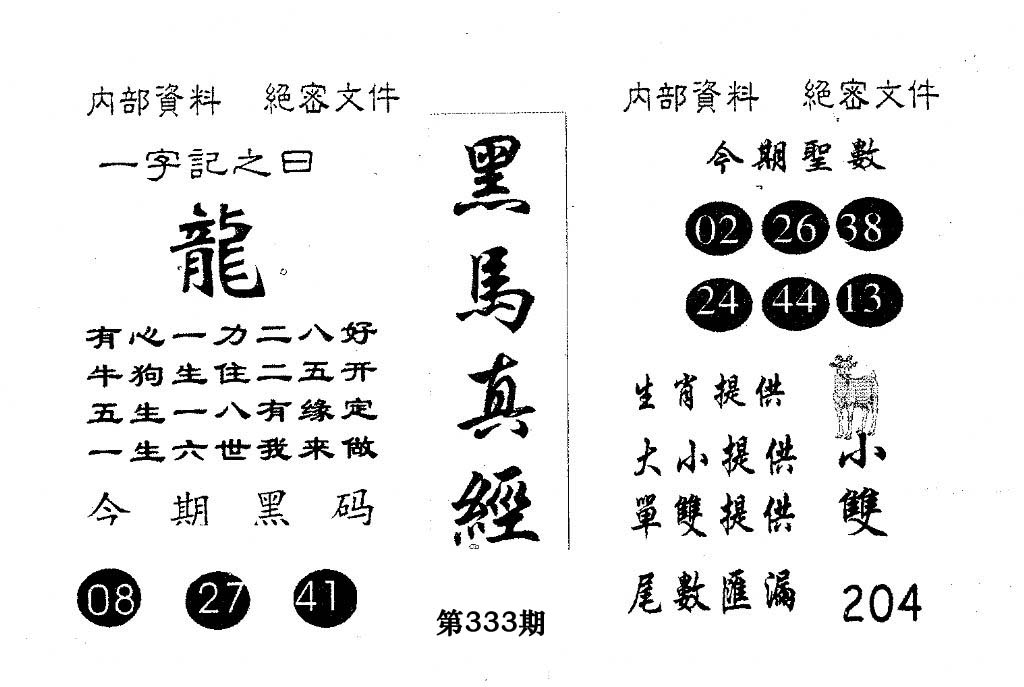 内部資料 絕密文件
一字記之曰
龍。
有心一力二八好
牛狗生住二五开
五生一八有缘定
一生六世我来做
今期黑码
08 27 41
黑馬真經
第333期
内部資料 絕密文件
今期聖數
02 26 38
24 44 13
生肖提供
大小提供 小
單雙提供 雙
尾數匯漏 204